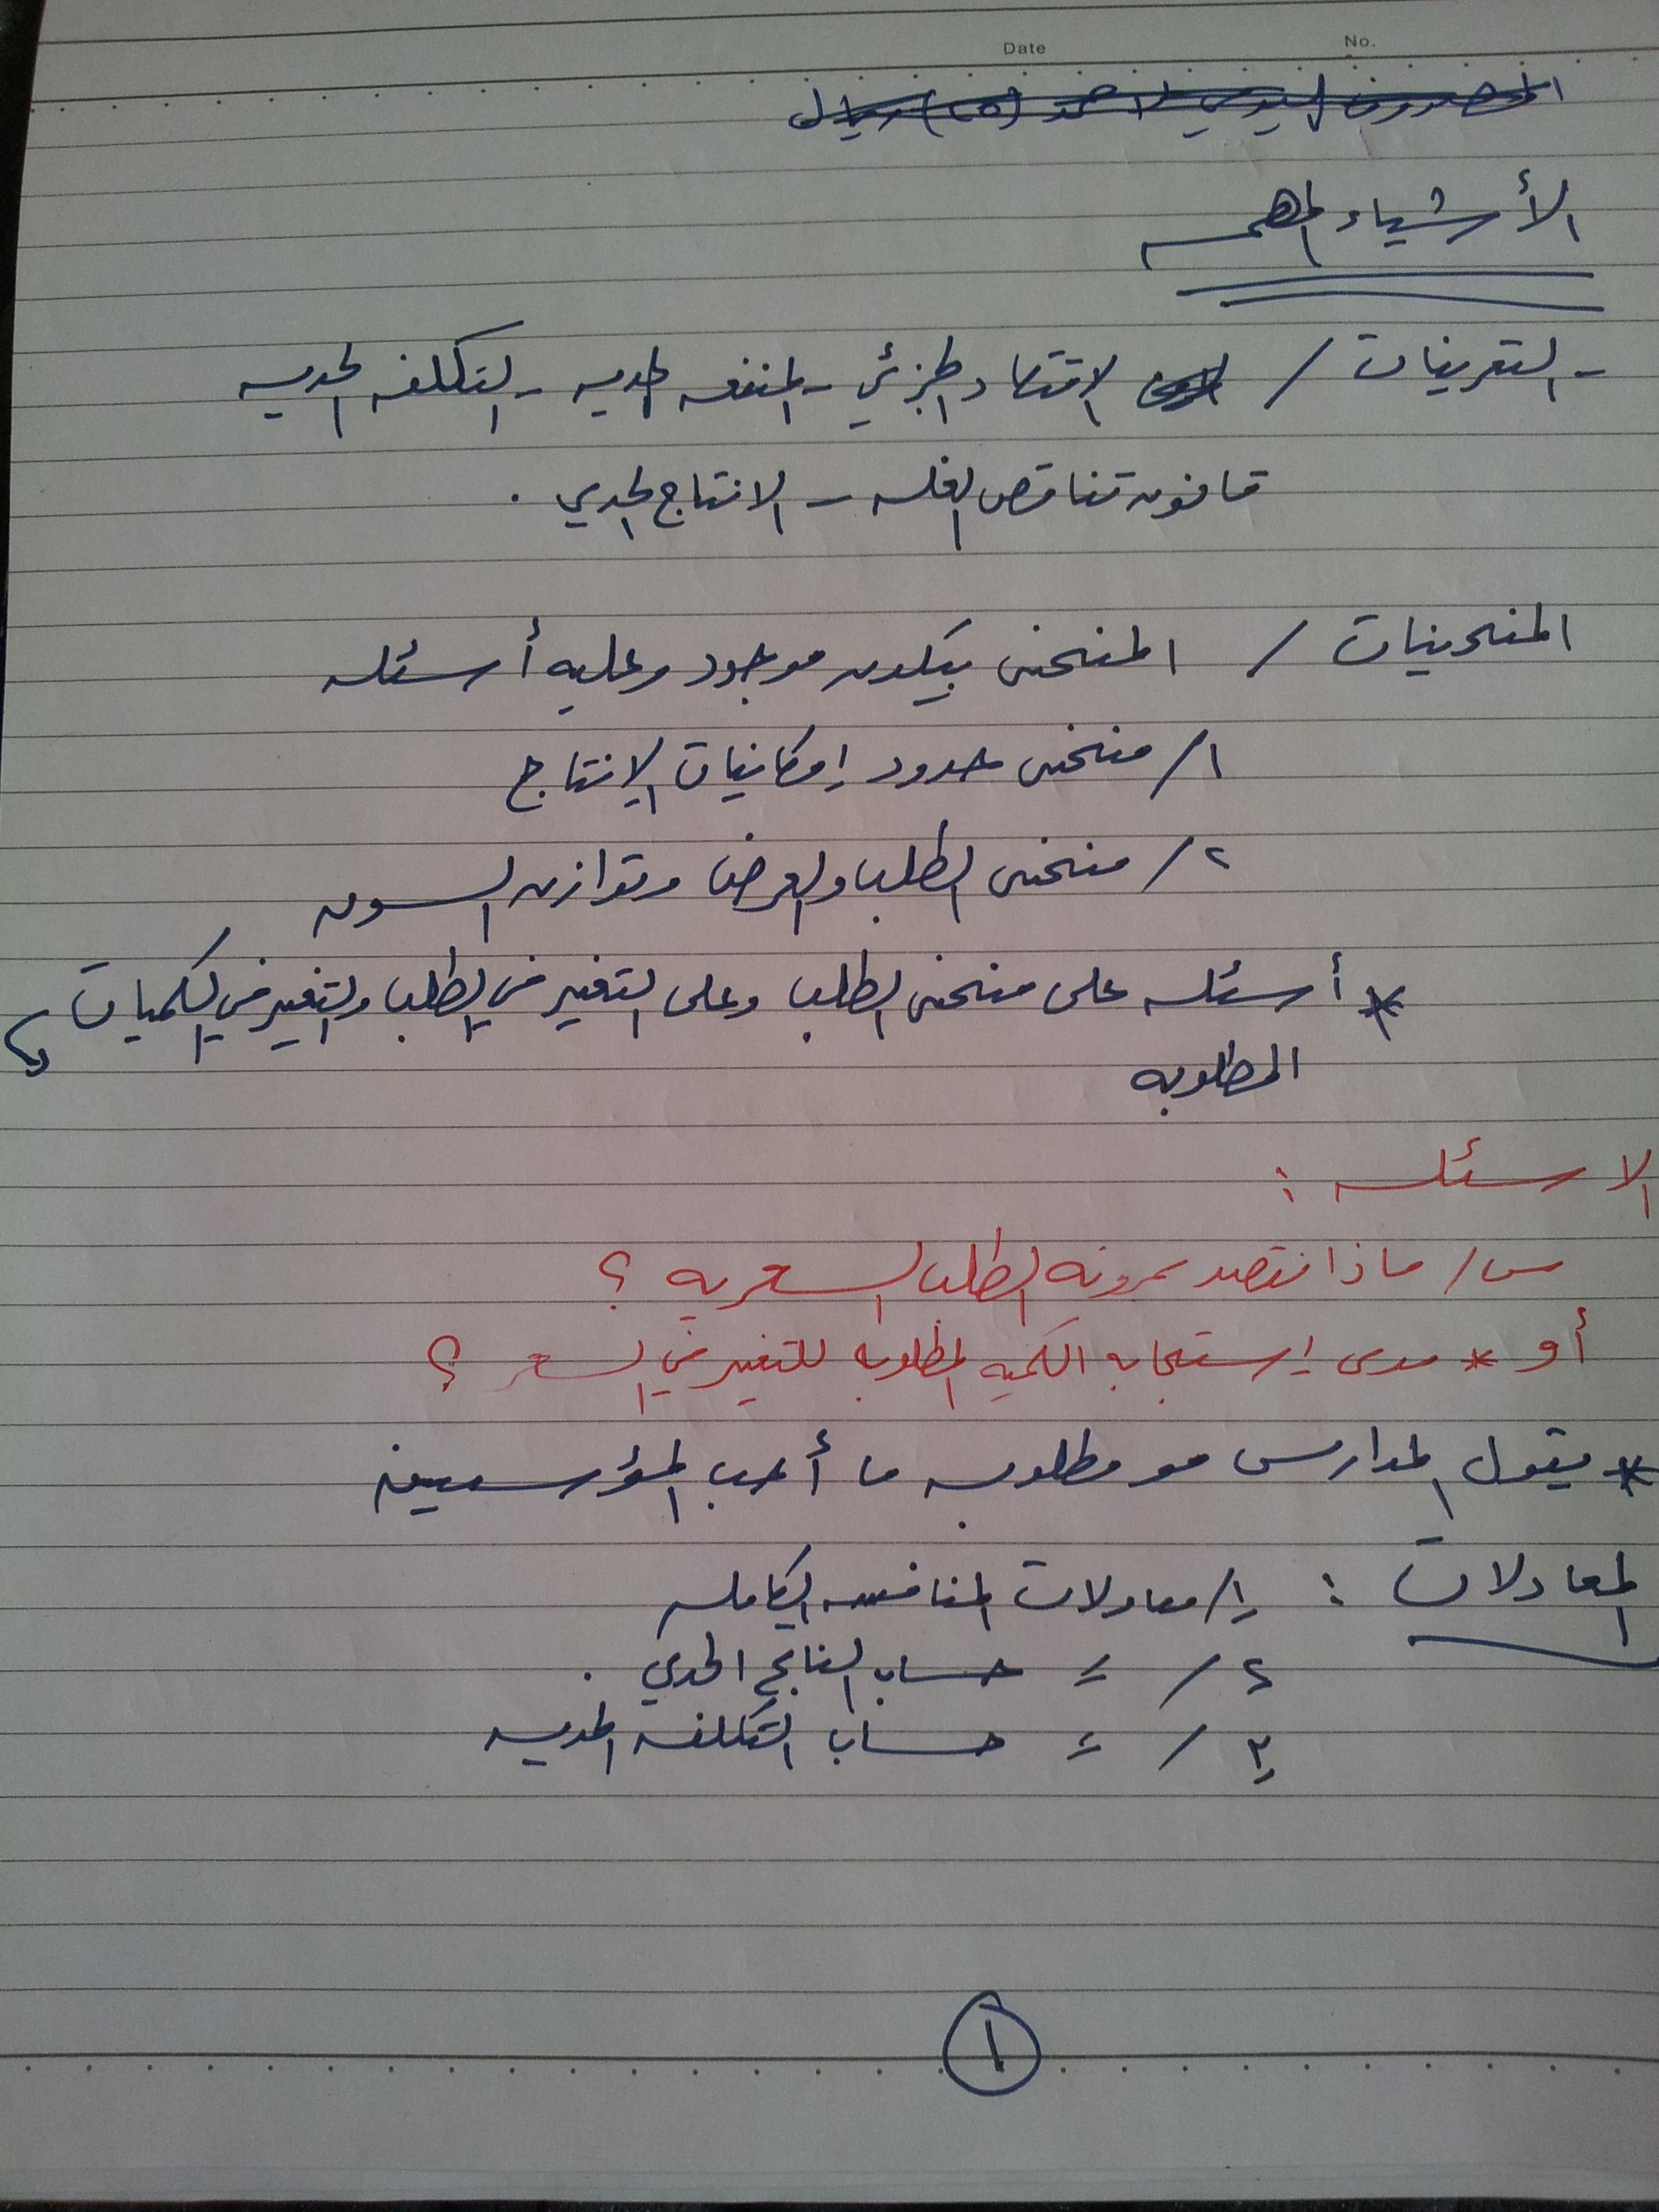 Date No.
المصروف اليومي لأحمد (٢٥) ريال
الأشياء المهمه
- التعريفات / الاقتصاد الجزئي - المنفعه الحديه - التكلفه الحديه
قانون تناقص الغله - الانتاج الحدي .
المنحنيات / المنحنى بيكون موجود وعليه أسئله
١/ منحنى حدود إمكانيات الإنتاج
٢/ منحنى الطلب والعرض وتوازن السوق
* أسئله على منحنى الطلب وعلى التغير في الطلب والتغير في الكميات
المطلوبه
الاسئله :
س/ ماذا نقصد بمرونه الطلب السعريه ؟
أو * مدى إستجابه الكميه المطلوبه للتغير في السعر ؟
* يقول المدارس مو مطلوبه ما أحب المؤسسين
المعادلات : ١/ معادلات المنافسه الكامله
٢/ = حساب الناتج الحدي .
٣/ = حساب التكلفه الحديه
١